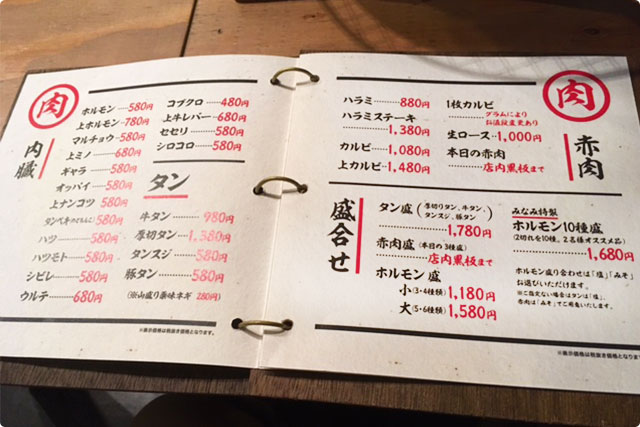 肉
内臓
ホルモン……580円
上ホルモン……780円
マルチョウ……580円
上ミノ……680円
ギャラ……580円
オッパイ……580円
上ナンコツ……580円
タンベキ(のどもとに)580円
ハツ……580円
ハツモト……580円
シビレ……580円
ウルテ……680円
コブクロ……480円
上牛レバー……680円
セセリ……580円
シロコロ……580円
タン
牛タン……980円
厚切タン……1,380円
タンスジ……580円
豚タン……580円
(※山盛り薬味ネギ 280円)
※表示価格は税抜き価格となります。
肉
赤肉
ハラミ……880円
ハラミステーキ
……1,380円
カルビ……1,080円
上カルビ……1,480円
1枚カルビ
……グラムにより
お値段変更あり
生ロース…1,000円
本日の赤肉
……店内黒板まで
盛合せ
タン盛(厚切りタン、牛タン、
タンスジ、豚タン)
……1,780円
赤肉盛(本日の3種盛)
……店内黒板まで
ホルモン盛
小(3・4種類)1,180円
大(5・6種類)1,580円
みなみ特製
ホルモン10種盛
(2切れを10種。2名様オススメ品)
……1,680円
ホルモン盛り合わせは「塩」「みそ」
お選びいただけます。
※ご指定ない場合はタンは「塩」、
赤肉は「みそ」でご用意いたします。
※表示価格は税抜き価格となります。